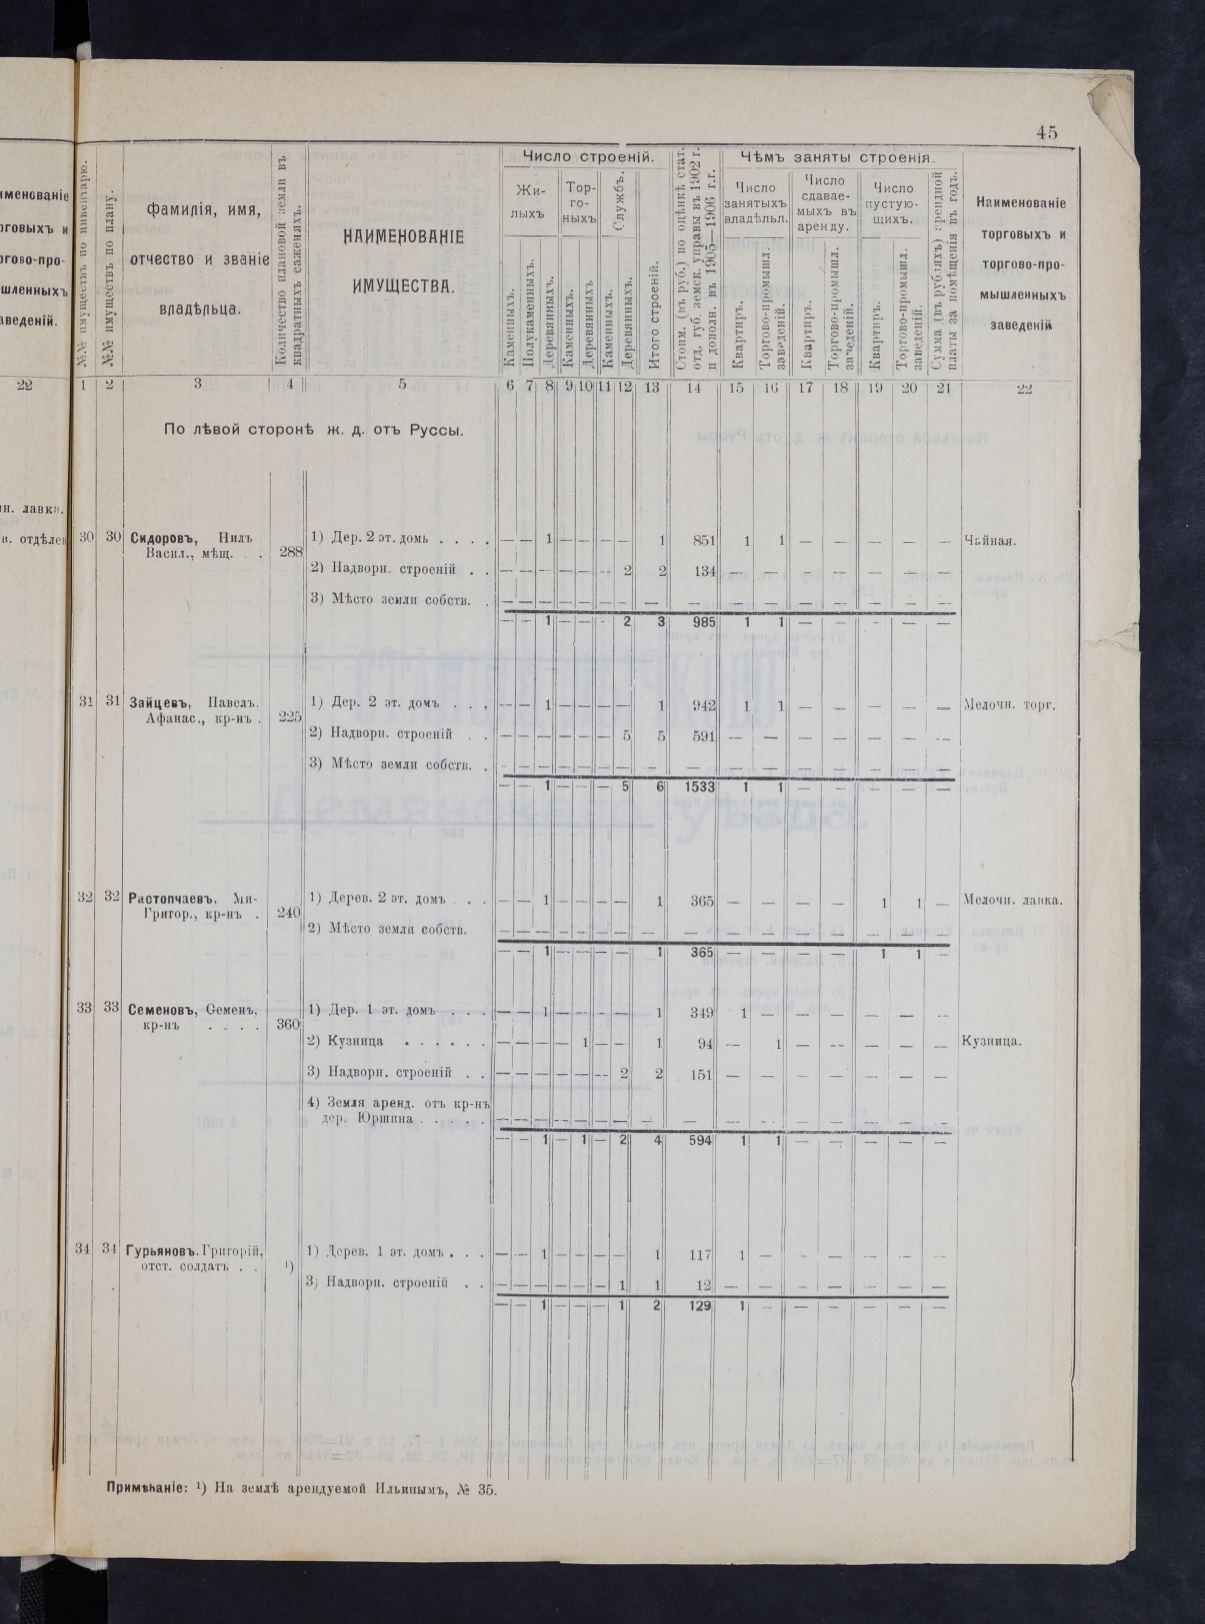 45
именованіе
рговыхъ и
ргово-про-
шленныхъ
аведеній.
22
н. лавка.
н. отдѣлен
№№ имуществъ по инвентарю.
№№ имуществъ по плану.
фамилія, имя,
отчество и званіе
владѣльца.
Количество плановой земли въ
квадратныхъ саженяхъ.
НАИМЕНОВАНІЕ
ИМУЩЕСТВА.
Число строеній.
Жи-
лыхъ
Тор-
го-
ныхъ
Службъ.
Каменныхъ.
Полукаменныхъ.
Деревянныхъ.
Каменныхъ.
Деревянныхъ
Каменныхъ.
Деревянныхъ.
Итого строеній.
Стоим. (въ руб.) по оцѣнкѣ стат.
отд. губ. земск. управы въ 1902 г.
и дополн. въ 1905—1906 г.г.
Чѣмъ заняты строенія.
Число
занятыхъ
владѣльл.
Число
сдавае-
мыхъ въ
аренду.
Число
пустую-
щихъ.
Квартиръ.
Торгово-промышл.
заведеній.
Квартиръ.
Торгово-промышл.
заведеній.
Квартиръ.
Торгово-промышл.
заведеній.
Сумма (въ рубляхъ) арендной
платы за помѣщенія въ годъ.
Наименованіе
торговыхъ и
торгово-про-
мышленныхъ
заведеній
1 2 3 4 5 6 7 8 9 10 11 12 13 14 15 16 17 18 19 20 21 22
По лѣвой сторонѣ ж. д. отъ Руссы.
30 30 Сидоровъ, Нилъ 1) Дер. 2 эт. домъ . . . . — — 1 — — — — 1 851 1 1 — — — — — Чайная.
Васил., мѣщ. . . 288
2) Надворн. строеній . . — — — — — — 2 2 134 — — — — — — —
3) Мѣсто земли собств. . — — — — — — — — — — — — — — — —
— — 1 — — — 2 3 985 1 1 — — — — —
31 31 Зайцевъ, Павелъ. 1) Дер. 2 эт. домъ . . . — — 1 — — — — 1 942 1 1 — — — — — Мелочн. торг.
Афанас., кр-нъ . 225
2) Надворн. строеній . . — — — — — — 5 5 591 — — — — — — —
3) Мѣсто земли собств. . — — — — — — — — — — — — — — — —
— — 1 — — — 5 6 1533 1 1 — — — — —
32 32 Растопчаевъ. Ми- 1) Дерев. 2 эт. домъ . . . — — 1 — — — — 1 365 — — — — 1 1 — Мелочн. лавка.
Григор., кр-нъ . 240
2) Мѣсто земли собств. — — — — — — — — — — — — — — — —
— — 1 — — — — 1 365 — — — — 1 1 —
33 33 Семеновъ, Семенъ, 1) Дер. 1 эт. домъ . . . — — 1 — — — — 1 349 1 — — — — — —
кр-нъ . . . . 360
2) Кузница . . . . . . — — — — 1 — — 1 94 — 1 — — — — — Кузница.
3) Надворн. строеній . . — — — — — — 2 2 151 — — — — — — —
4) Земля аренд. отъ кр-нъ
дер. Юршина . . . . . — — — — — — — — — — — — — — — —
— — 1 — 1 — 2 4 594 1 1 — — — — —
34 34 Гурьяновъ. Григорій, 1) Дерев. 1 эт. домъ . . . — — 1 — — — — 1 117 1 — — — — — —
отст. солдатъ . . ¹)
3) Надворн. строеній . . — — — — — — 1 1 12 — — — — — — —
— — 1 — — — 1 2 129 1 — — — — — —
Примѣчаніе: ¹) На землѣ арендуемой Ильинымъ, № 35.